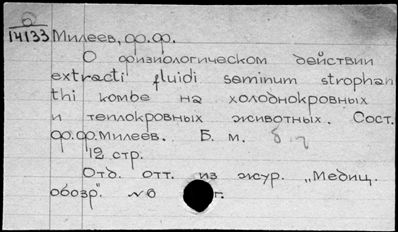 б
14133 Милеев, ф.ф.
О физиологическом действии
extracti fluidi seminum strophan
thi kombe на холоднокровных
и теплокровных животных. Сост.
ф.ф. Милеев. Б. м. б. г
12 стр.
Отд. отт. из жур. „Медиц.
обозр". №6 г.